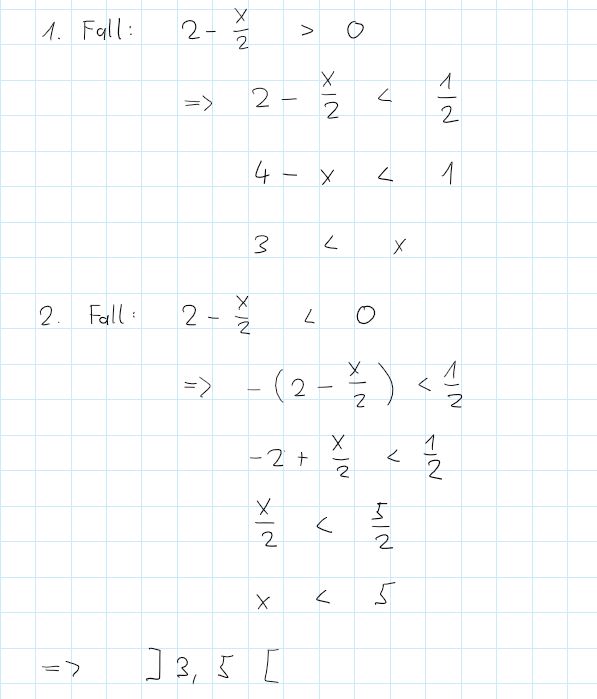 1. Fall: 2 - x/2 > 0
=> 2 - x/2 < 1/2
4 - x < 1
3 < x
2. Fall: 2 - x/2 < 0
=> -(2 - x/2) < 1/2
-2 + x/2 < 1/2
x/2 < 5/2
x < 5
=> ]3, 5[